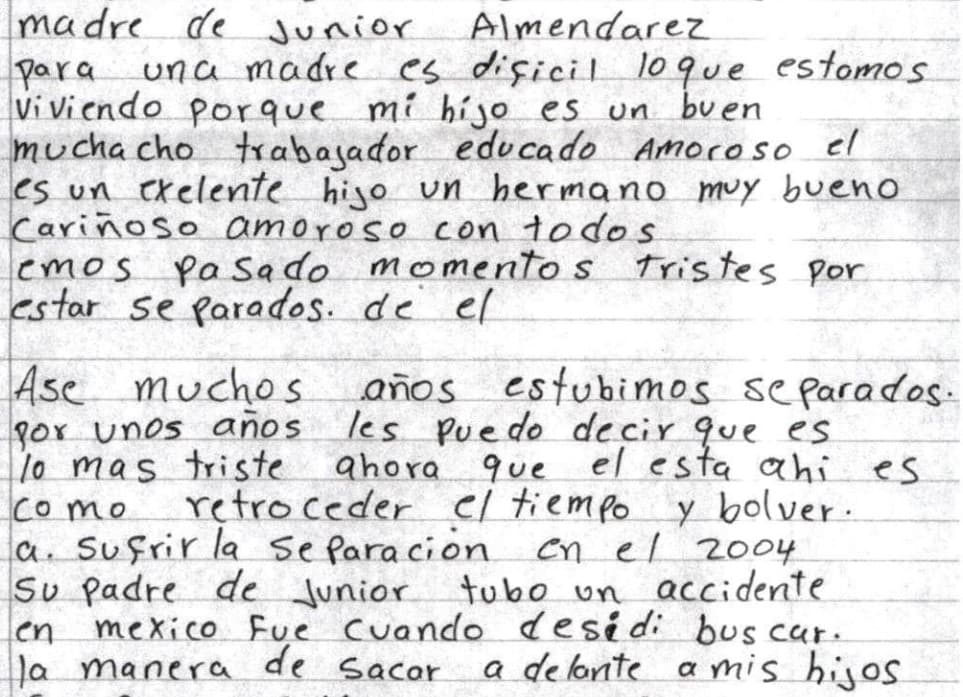 madre de Junior Almendarez
para una madre es dificil lo que estamos
viviendo porque mi hijo es un buen
muchacho trabajador educado Amoroso el
es un exelente hijo un hermano muy bueno
cariñoso amoroso con todos
emos pasado momentos tristes por
estar separados. de el
Ase muchos años estubimos separados.
por unos años les puedo decir que es
lo mas triste ahora que el esta ahi es
como retroceder el tiempo y bolver.
a. sufrir la separacion en el 2004
su padre de Junior tubo un accidente
en mexico Fue cuando desidi buscar.
la manera de sacar adelante a mis hijos